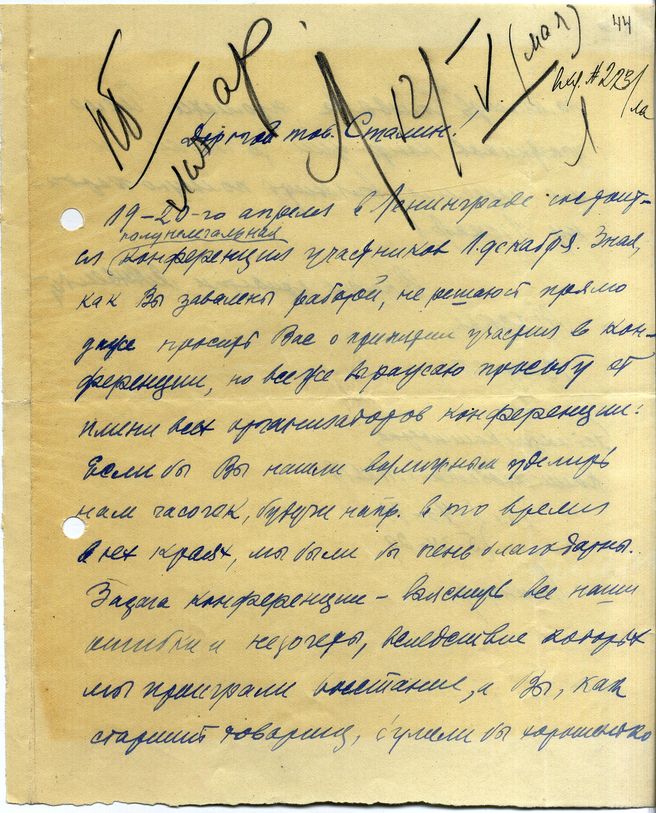 44
ПБ
мой ар.
12/V (мая)
вх. № 223/
ла
1
Дорогой тов. Сталин!
19–20-го апреля в Ленинграде состоит-
полунелегальная
ся конференция участников 1. декабря. Зная,
как Вы завалены работой, не решаюсь прямо
даже просить Вас о принятии участия в кон-
ференции, но все же выражаю просьбу от
имени всех организаторов конференции:
Если бы Вы нашли возможным уделить
нам часочек, будучи напр. в то время
в тех краях, мы были бы очень благодарны.
Задача конференции – выяснить все наши
ошибки и недочеты, вследствие которых
мы проиграли восстание, а Вы, как
старший товарищ, сумели бы хорошенько